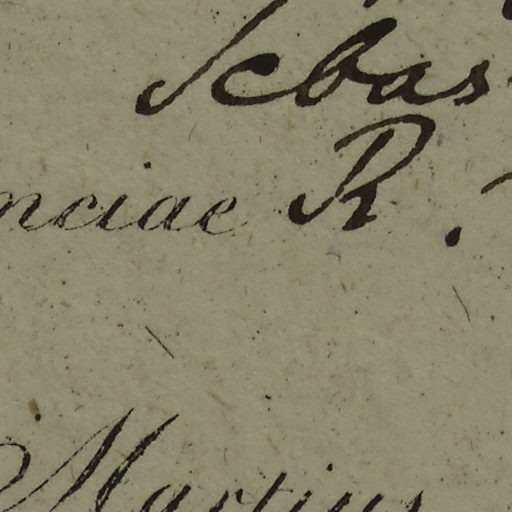 Sebas
nciae R.
Martius